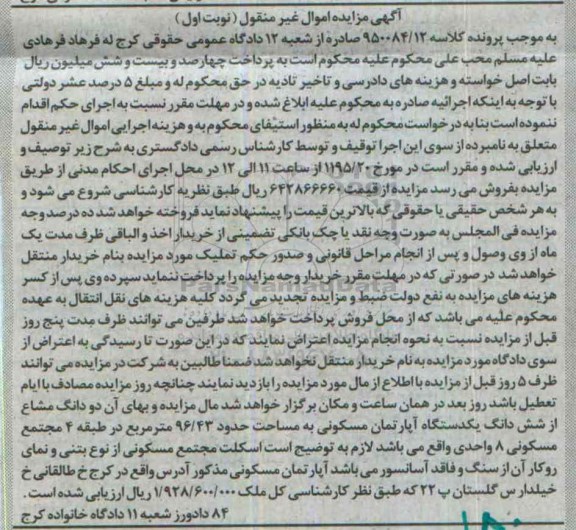 آگهی مزایده اموال غیر منقول (نوبت اول)
به موجب پرونده کلاسه ۹۵۰۰۸۴/۱۲ صادره از شعبه ۱۲ دادگاه عمومی حقوقی کرج له فرهاد فرهادی
علیه مسلم محب علی محکوم علیه محکوم است به پرداخت چهارصد و بیست و شش میلیون ریال
بابت اصل خواسته و هزینه های دادرسی و تاخیر تادیه در حق محکوم له و مبلغ ۵ درصد عشر دولتی
با توجه به اینکه اجرائیه صادره به محکوم علیه ابلاغ شده و در مهلت مقرر نسبت به اجرای حکم اقدام
ننموده است بنا به درخواست محکوم له به منظور استیفای محکوم به و هزینه اجرایی اموال غیر منقول
متعلق به نامبرده از سوی این اجرا توقیف و توسط کارشناس رسمی دادگستری به شرح زیر توصیف و
ارزیابی شده و مقرر است در مورخ ۱۱۹۵/۲۰ از ساعت ۱۱ الی ۱۲ در محل اجرای احکام مدنی از طریق
مزایده بفروش می رسد مزایده از قیمت ۶۴۲۸۶۶۶۶۰ ریال طبق نظریه کارشناسی شروع می شود و
به هر شخص حقیقی یا حقوقی که بالاترین قیمت را پیشنهاد نماید فروخته خواهد شد ده درصد وجه
مزایده فی المجلس به صورت وجه نقد یا چک بانکی تضمینی از خریدار اخذ و الباقی ظرف مدت یک
ماه از وی وصول و پس از انجام مراحل قانونی و صدور حکم تملیک مورد مزایده بنام خریدار منتقل
خواهد شد در صورتی که در مهلت مقرر خریدار وجه مزایده را پرداخت ننماید سپرده وی پس از کسر
هزینه های مزایده به نفع دولت ضبط و مزایده تجدید می گردد کلیه هزینه های نقل انتقال به عهده
محکوم علیه می باشد که از محل فروش پرداخت خواهد شد طرفین می توانند ظرف مدت پنج روز
قبل از مزایده نسبت به نحوه انجام مزایده اعتراض نمایند که در این صورت تا رسیدگی به اعتراض از
سوی دادگاه مورد مزایده به نام خریدار منتقل نخواهد شد ضمنا طالبین به شرکت در مزایده می توانند
ظرف ۵ روز قبل از مزایده با اطلاع از مال مورد مزایده را بازدید نمایند چنانچه روز مزایده مصادف با ایام
تعطیل باشد روز بعد در همان ساعت و مکان برگزار خواهد شد مال مزایده و بهای آن دو دانگ مشاع
از شش دانگ یکدستگاه آپارتمان مسکونی به مساحت حدود ۹۶/۴۳ مترمربع در طبقه ۴ مجتمع
مسکونی ۸ واحدی واقع می باشد لازم به توضیح است اسکلت مجتمع مسکونی از نوع بتنی و نمای
روکار آن از سنگ و فاقد آسانسور می باشد آپارتمان مسکونی مذکور آدرس واقع در کرج خ طالقانی خ
خیلدار س گلستان پ ۲۲ که طبق نظر کارشناسی کل ملک ۱/۹۲۸/۶۰۰/۰۰۰ ریال ارزیابی شده است.
۸۴ دادورز شعبه ۱۱ دادگاه خانواده کرج
ParsNamadData